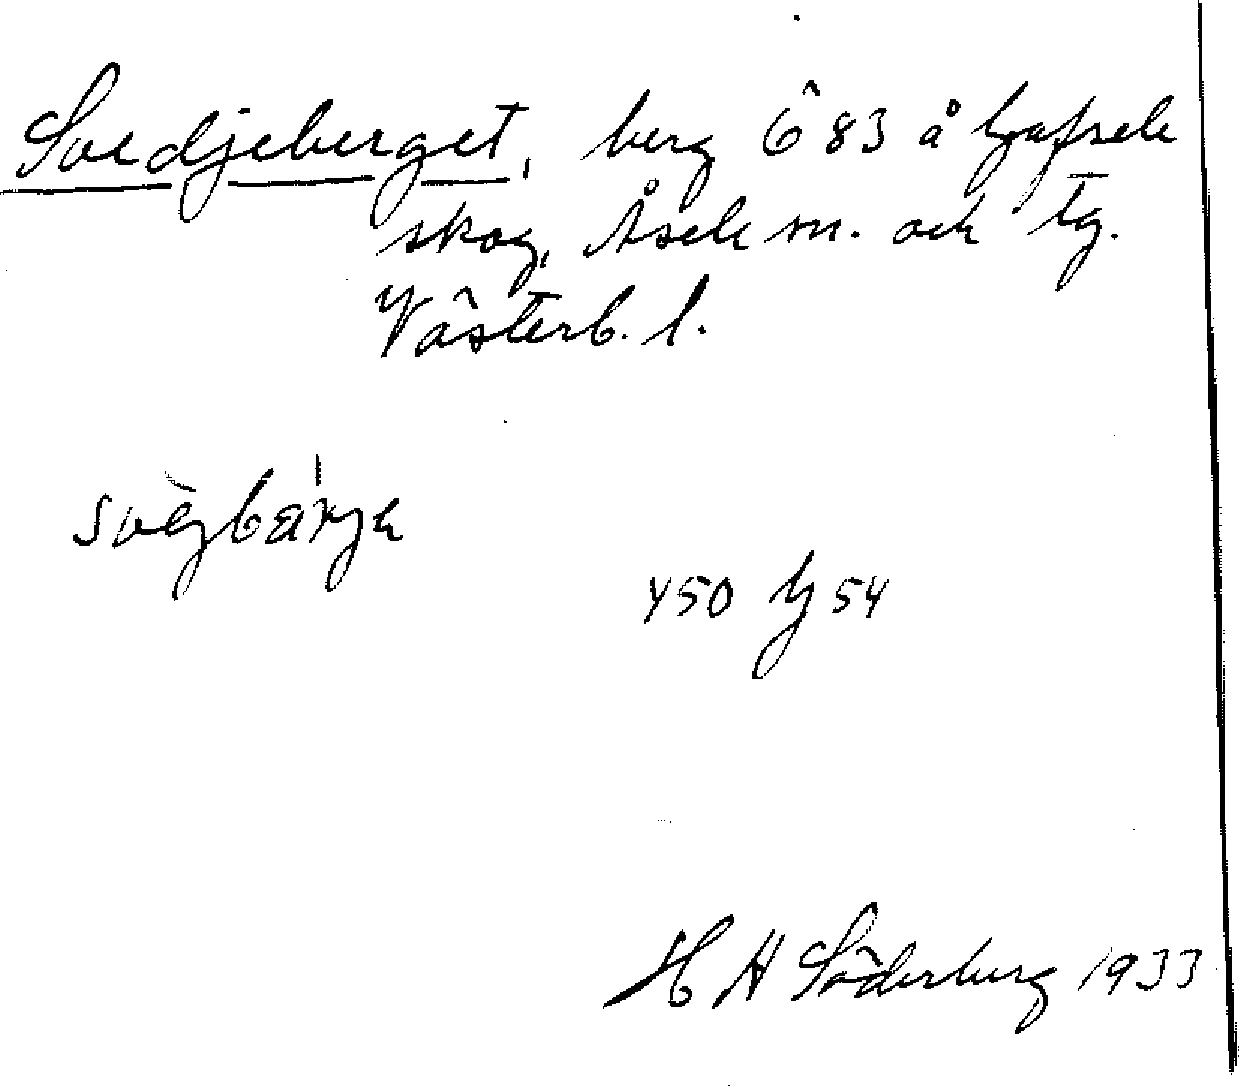 Svedjeberget, berg ô 83 å Gafsele
skog, Åsele sn. och tg.
Västerb. l.
450 54
H A Söderberg 1933